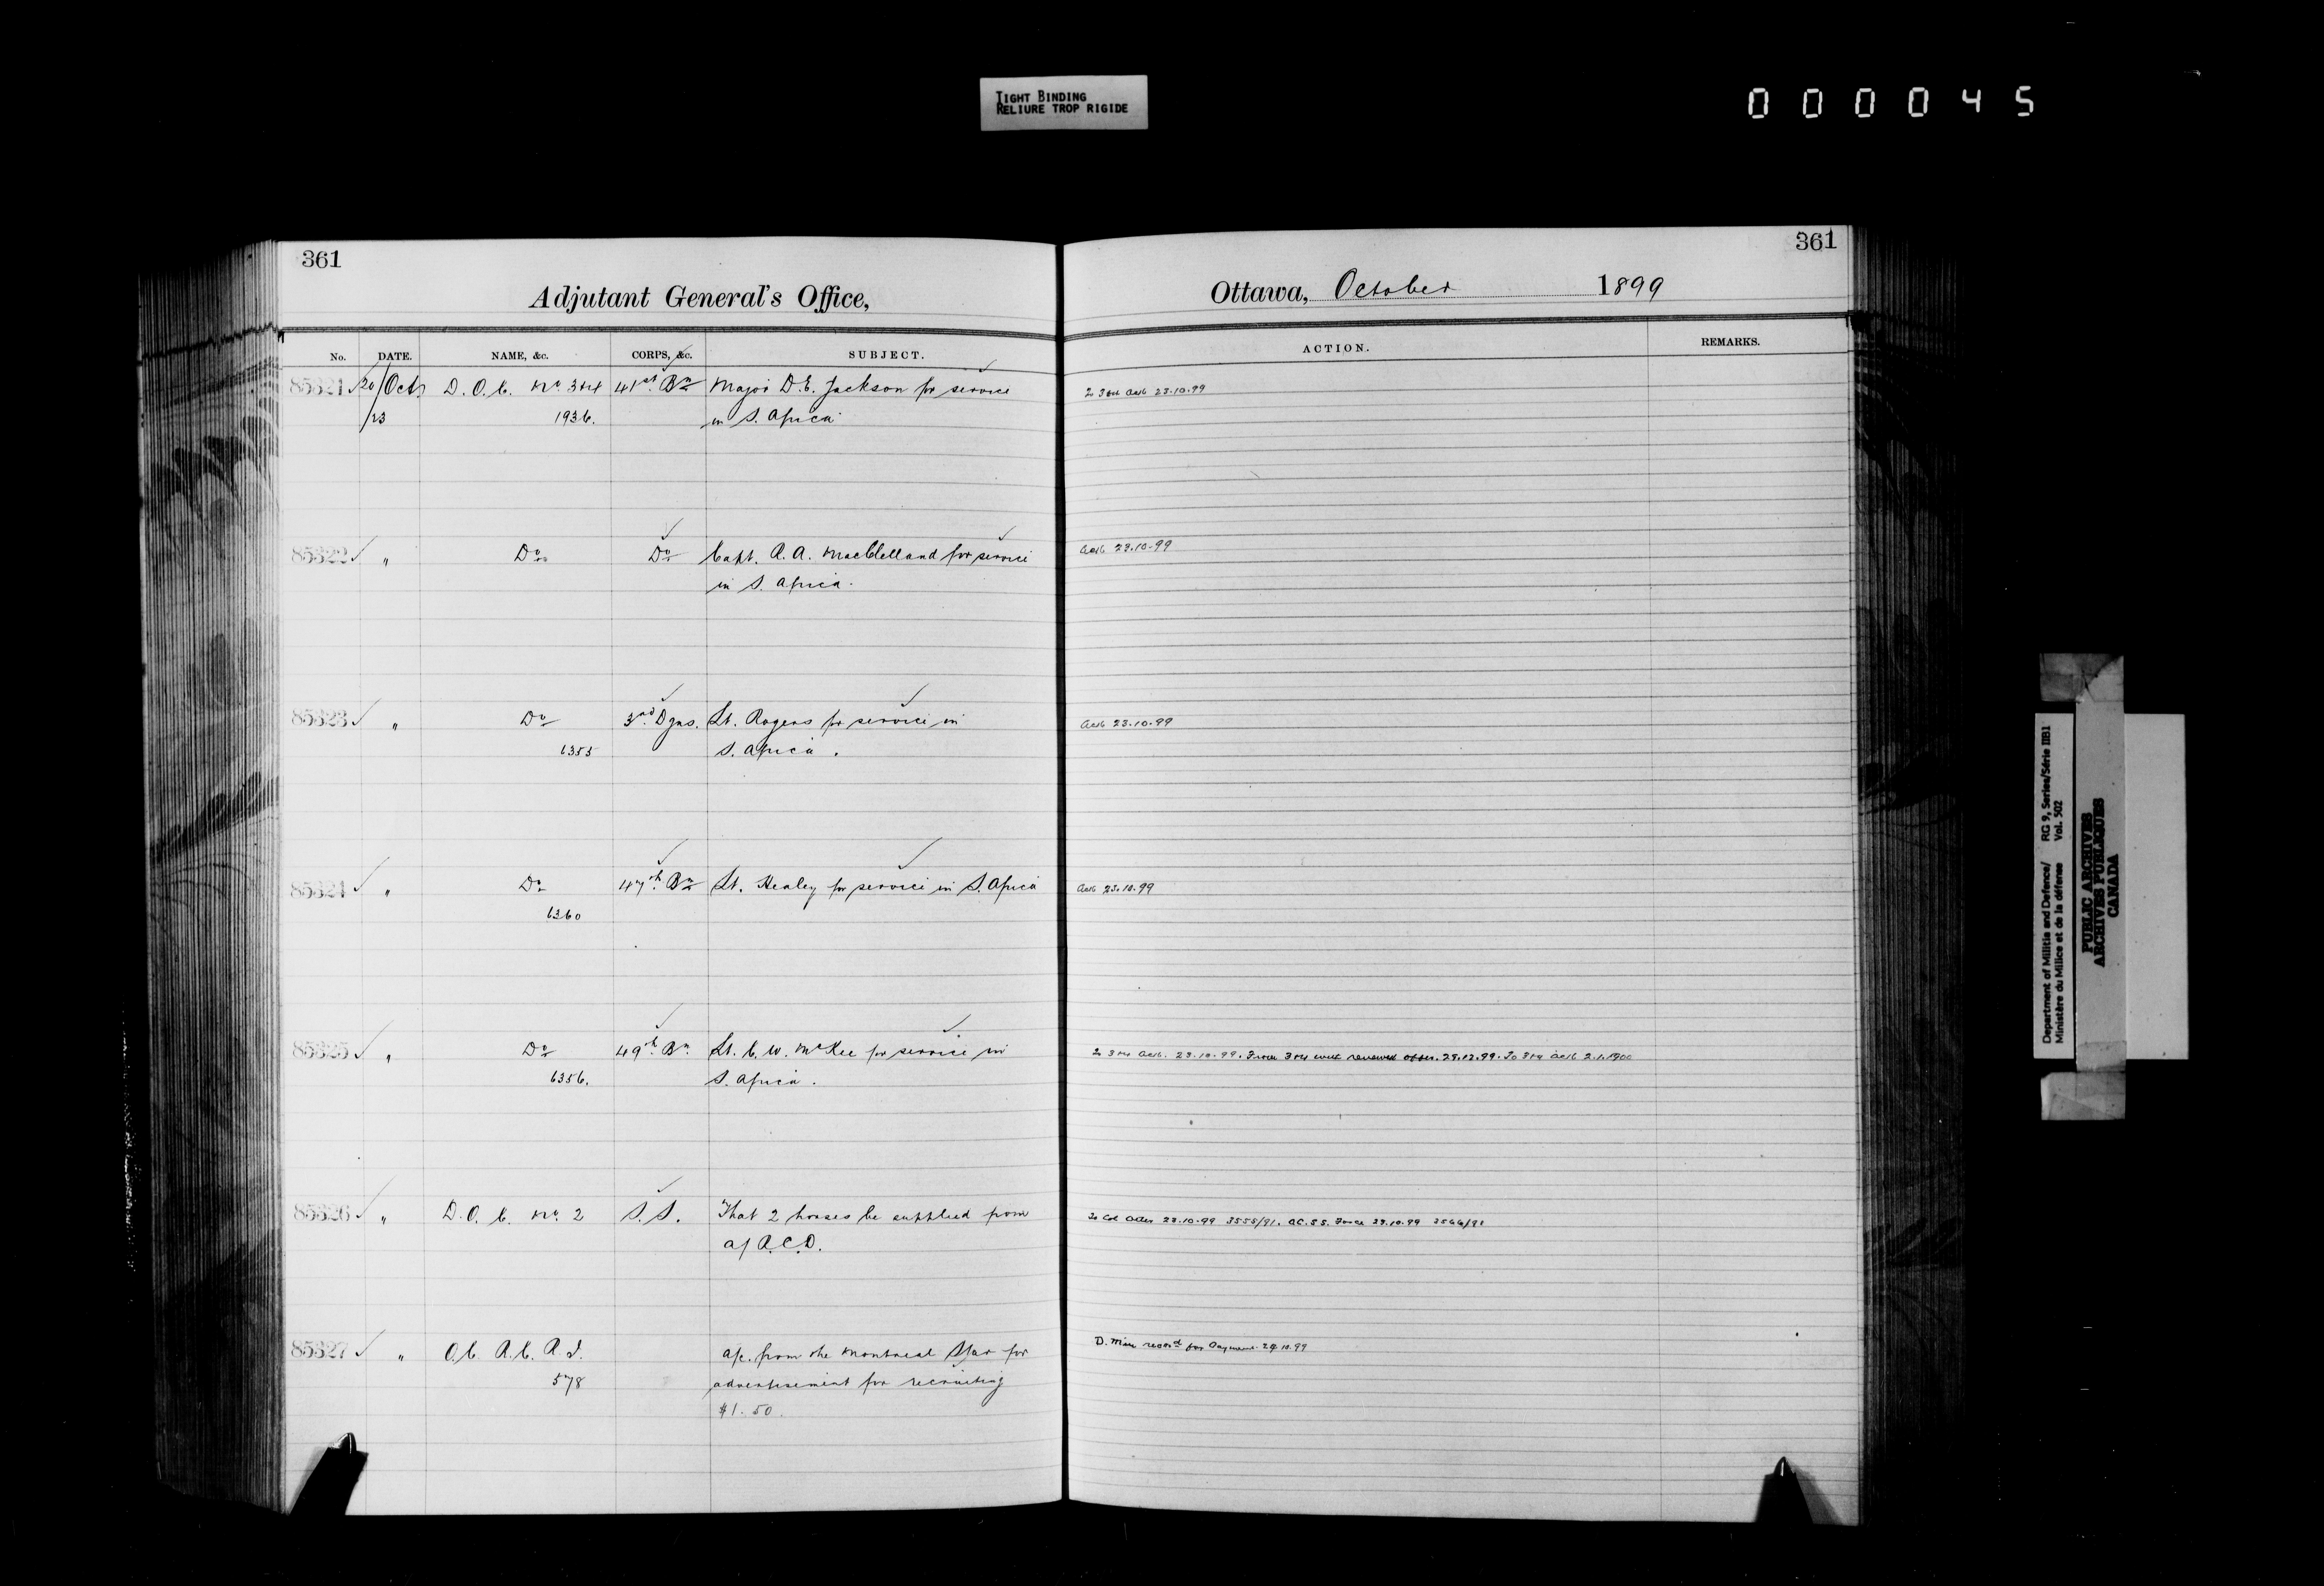 TIGHT BINDING
RELIURE TROP RIGIDE
000045
361
Adjutant General's Office,
No. DATE. NAME, &c. CORPS, &c. SUBJECT.
85321 ✓ 20/Oct D.O.C. No. 3&4 41st Bn Major D.E. Jackson for service
/23 1936. in S. Africa
85322 ✓ " Do. Do Capt. R.A. MacClelland for service
in S. Africa.
85323 ✓ " Do 3rd Dgns. Lt. Rogers for service in
6355 S. Africa.
85324 ✓ " Do 47th Bn Lt. Healey for service in S. Africa
6360
85325 ✓ " Do 49th Bn. Lt. C.W. McKee for service in
6356. S. Africa.
85326 ✓ " D.O.C. No. 2 S.S. That 2 horses be supplied from
A/R.C.D.
85327 ✓ " O.C. R.C.R.I. a/c. from the Montreal Star for
578 advertisement for recruiting
$1.50.
361
Ottawa, October 1899
ACTION. REMARKS.
To 3&4 23.10.99
23.10.99
23.10.99
23.10.99
To 3&4 23.10.99. From 3&4 with renewed offer. 29.12.99. To 3&4 2.1.1900
To 23.10.99 3555/91. 23.10.99
D. Min for Payment 24.10.99
Department of Militia and Defence/ RG 9, Series/Série IIB1
Ministère du Milice et de la défense Vol. 502
PUBLIC ARCHIVES
ARCHIVES PUBLIQUES
CANADA